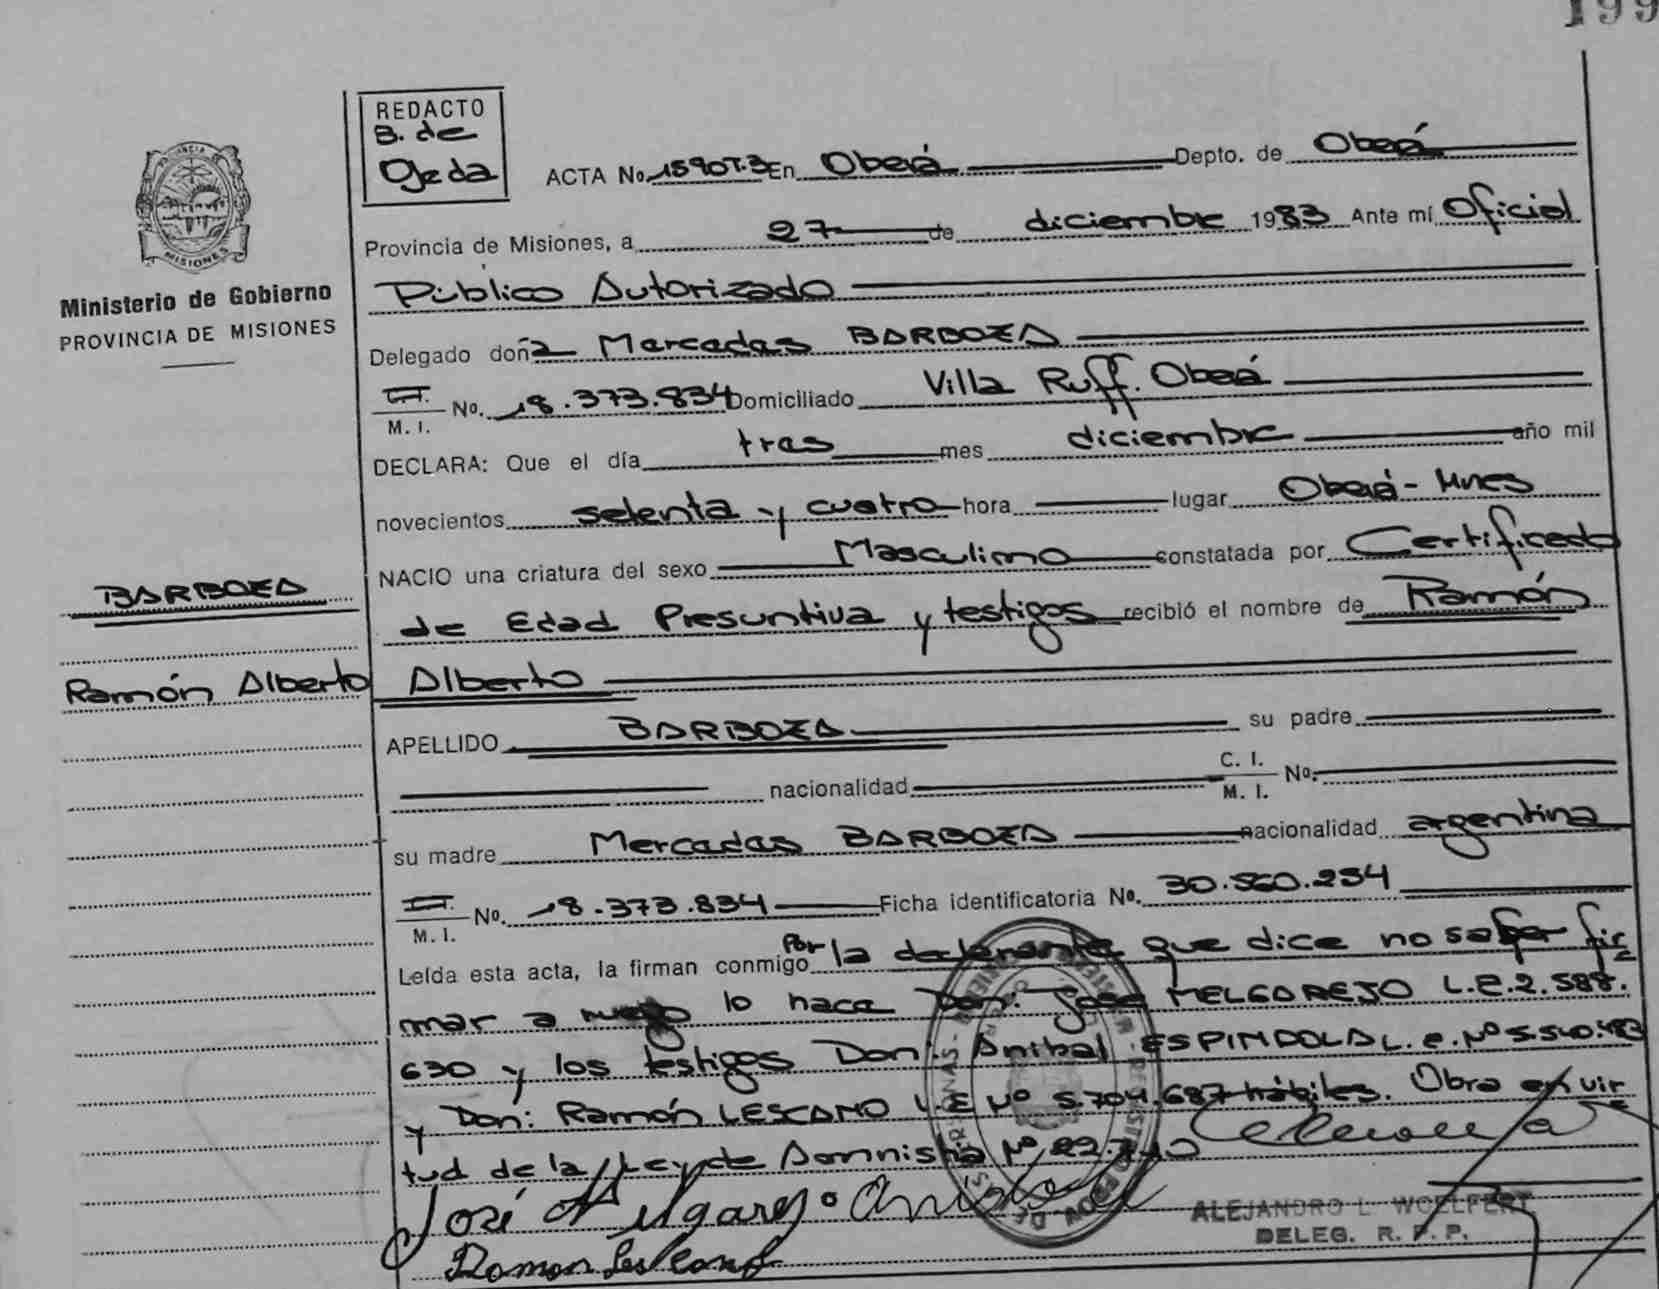 199
REDACTO
B. de
Ojeda
ACTA No. 1590T.3 En Oberá Depto. de Oberá
Provincia de Misiones, a 27 de diciembre 1983 Ante mí Oficial
Público Autorizado
PROVINCIA DE
MISIONES
Ministerio de Gobierno
PROVINCIA DE MISIONES
Delegado doña Mercedes BARBOZA
C.I.
M. I. No. 18.373.834 Domiciliado Villa Ruff. Oberá
DECLARA: Que el día tres mes diciembre año mil
novecientos setenta y cuatro hora lugar Oberá - Mnes
NACIO una criatura del sexo Masculino constatada por Certificado
de Edad Presuntiva y testigos recibió el nombre de Ramón
Alberto
BARBOZA
Ramón Alberto
APELLIDO BARBOZA su padre
nacionalidad C. I.
M. I. No.
su madre Mercedes BARBOZA nacionalidad argentina
C.I.
M. I. No. 18.373.834 Ficha identificatoria No. 30.560.234
Leída esta acta, la firman conmigo Por la declarante que dice no saber fir
mar a ruego lo hace Don: José MELGAREJO L.E.2.588.
630 y los testigos Don: Anibal ESPINDOLA L.e. Nº 5.540.483
y Don: Ramón LESCANO L.E Nº 5.704.687 hábiles. Obra en vir
tud de la Ley de Amnistia Nº 22.
José Melgarejo
Ramon Lescano
ALEJANDRO L. WOELFERT
DELEG. R. P. P.